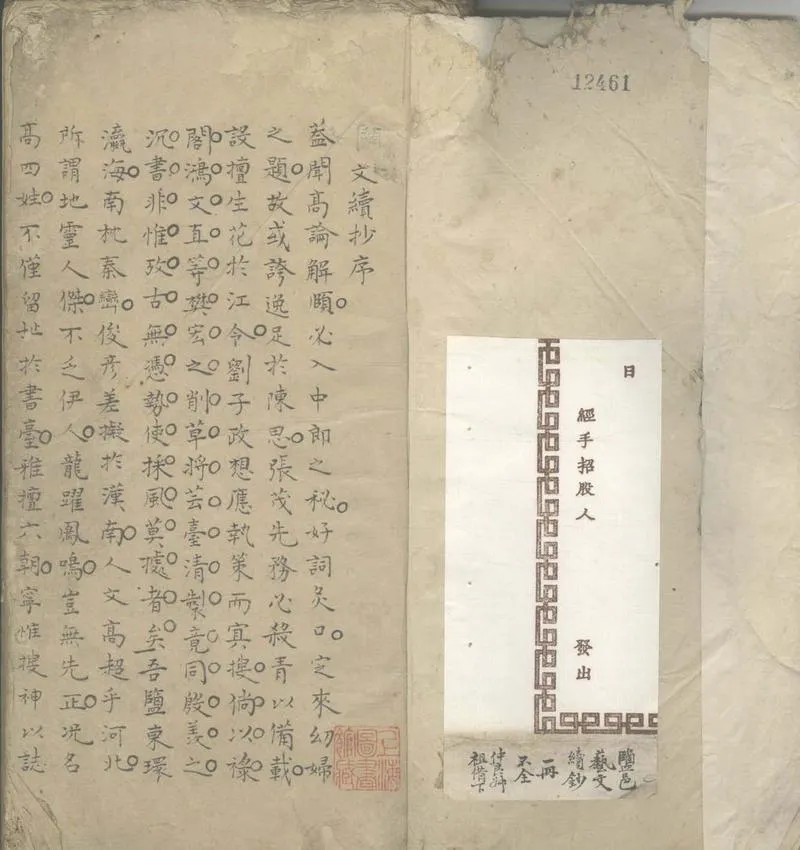 12461
日
經手招股人 發出
鹽邑
藝文
續鈔
一冊
不全
祖借下
文續抄序
蓋聞高論解頤必入中郎之秘好詞灸口定來幼婦
之題故或誇逸足於陳思張茂先務必殺青以備載
設擅生花於江令劉子政想應執策而寘摟倘以祿
閣鴻文直等樊宏之削草將芸臺清製竟同殷羨之
沉書非惟攷古無憑勢使採風莫據者矣吾鹽東環
瀛海南枕秦巒俊彥差擬於漢南人文高超乎河北
所謂地靈人傑不乏伊人龍躍鳳鳴豈無先正况名
高四姓不僅留址於書臺雅擅六朝寧惟摟神以誌
上海圖書館藏